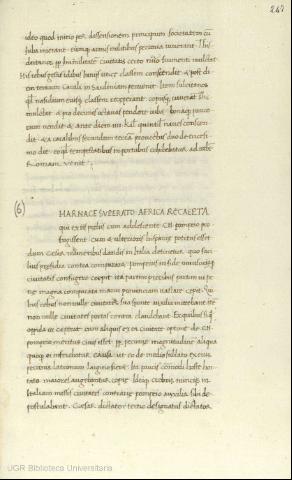 247
ideo quod initio per dissensionem principum societatem cū
Iuba inierant eiusq; armis militibus pecunia iuuerant
multat pp humilitatē ciuitatis certo numero frumenti multat
His rebus gestis idibus Iuniis utice classem conscendit & post diem
tertium Caralis in Sardiniam peruenit Ibi sulcitanos
qđ nasidium eiusq; classem receperant copiisq; iuuerant
multat & pro decumis octauas pendere iubet bonaq; paucorum
uendit & ante diem Kał quintil naues conscendit
& a caralibus secundum terram prouectus duo detricesimo
die eo qđ tempestatibus in portibus cohibebatur ad urbē
Romam uenit
(6)
HARNACE SVPERATO AFRICA RECAEPTA
qui ex his proeliis cum adulescente CN pompeio
profugissent cum & ulterioris hispaniae potitus esset
dum Cesar muneribus dandis in Italia detinetur quo facilius
praesidia contra compararet pompeius in fidē unius cuiusq;
ciuitatis confugere coepit ita partim precibus partim ui
magna comparata manu prouinciam uastare cepit
rebus non nulle ciuitates sua sponte auxilia mittebant
non nulle ciuitates portas contra claudebant Ex quibus siqua
oppida ui ceperat cum aliquis ex ea ciuitate optime de CN
pompeio meritus ciuis esset pp pecuniae magnitudinē aliqua
ei inferebatur causa ut eo de medio sublato ex eius
pecunia latronum largitio fieret Ita paucis
maiores augebantur copie Ideoq; crebris nunciis in
Italiam missis ciuitates contrarie pompeio auxilia sibi
postulabant Caesar dictator tertio designatus dictator
UGR Biblioteca Universitaria